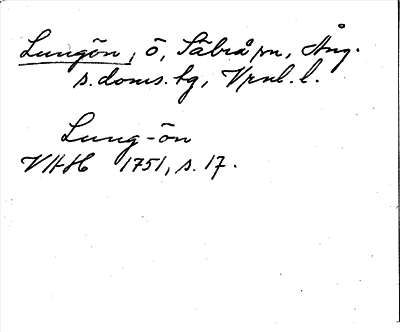 Lungön, ö, Säbrå sn, Ång.
s. doms. hg, Vrnl. l.
Lung-ön
VHH 1751, s. 17.